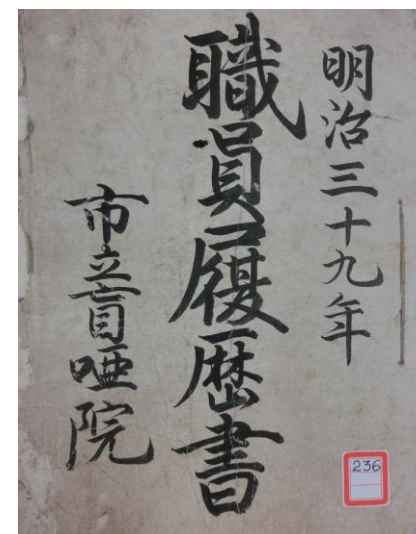 明治三十九年
職員履歴書
市立盲唖院
236